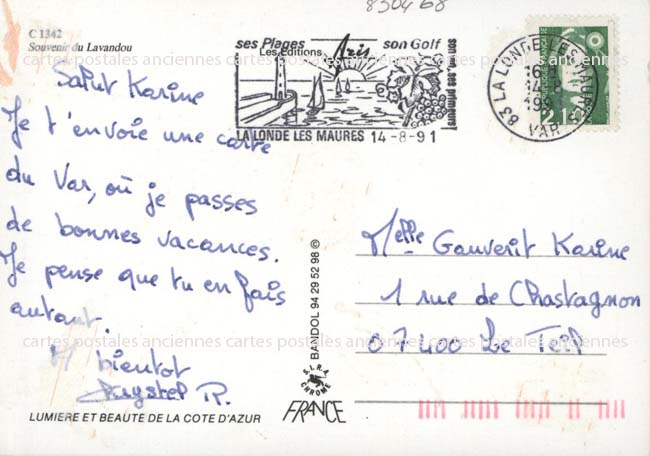 830468
C 1342
Souvenir du Lavandou
ses Plages
Les Editions
Aris
son Golf
LA LONDE LES MAURES 14-8-91
83 LA LONDE LES MAURES
VAR
2,10
Salut Karine
Je t'envoie une carte
du Var, où je passes
de bonnes vacances.
Je pense que tu en fais
autant.
A bientot
Krystel R.
Melle Gauverit Karine
1 rue de Chastagnon
07400 Le Teil
cartes postales anciennes cartes postales anciennes cartes postales anciennes cartes postales anciennes
BANDOL 94 29 52 98 ©
S.L.R.A.
CHROME
FRANCE
LUMIERE ET BEAUTE DE LA COTE D'AZUR